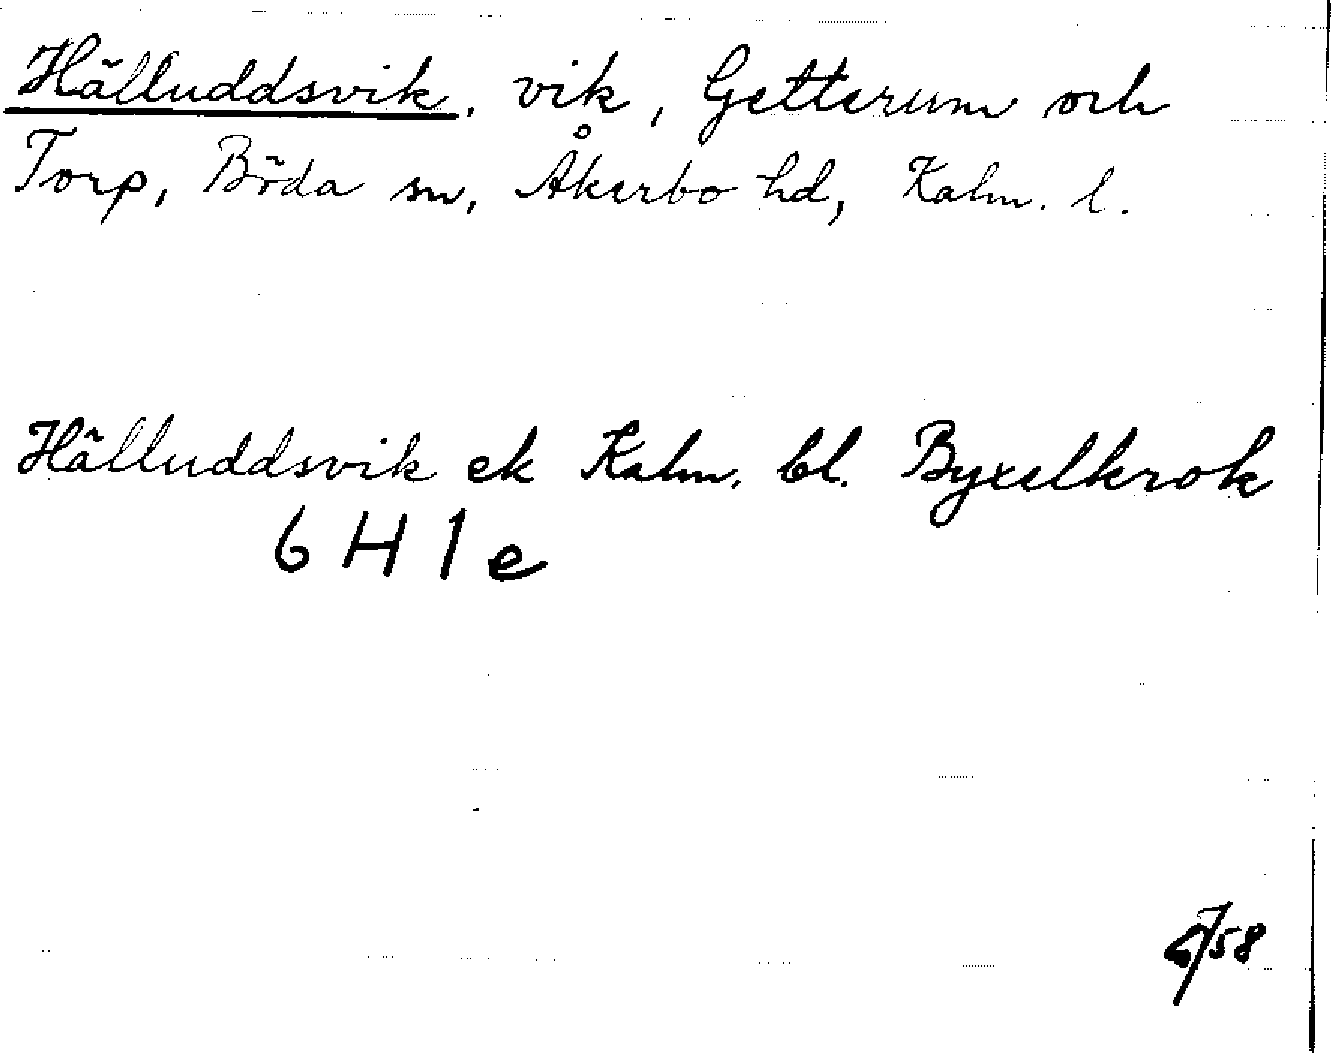 Hälluddsvik, vik, Getterum och
Torp, Böda sn, Åkerbo hd, Kalm. l.
Hälluddsvik ek Kalm. bl. Byxelkrok
6 H 1 e